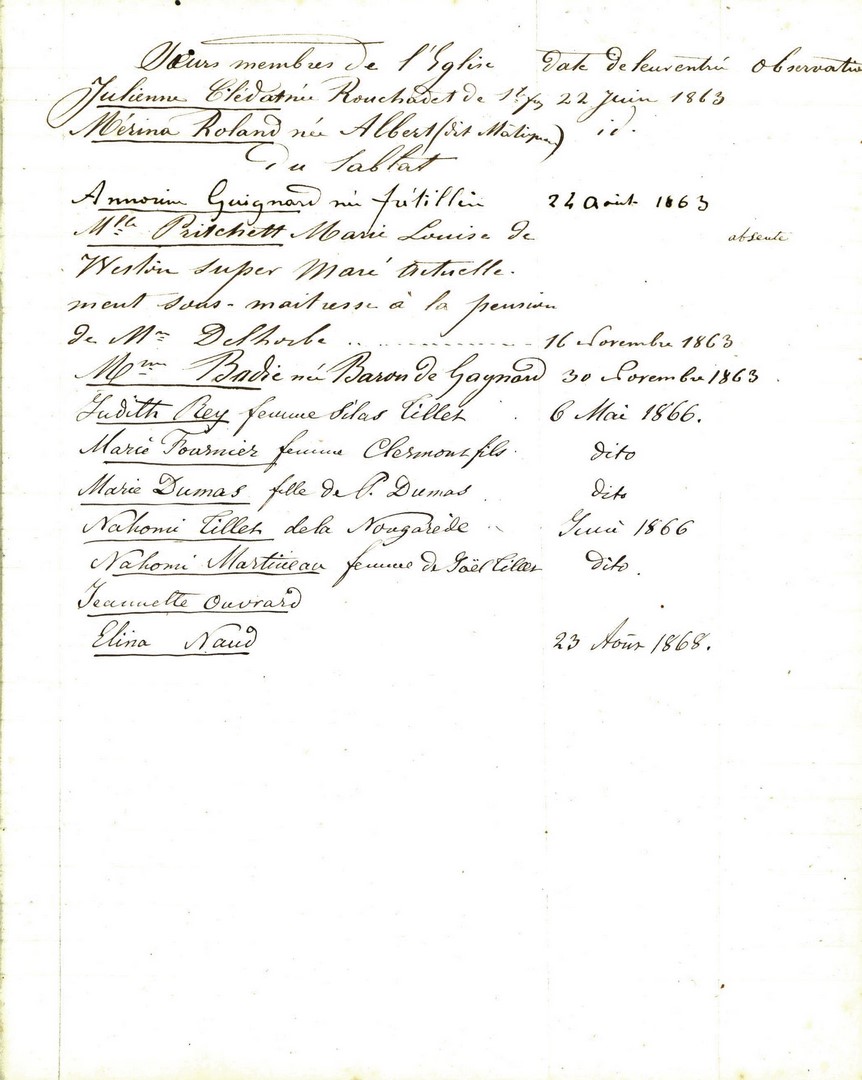 Sœurs membres de l'Eglise date de leur entrée observatio
Julienne Clédat née Rouchadet de Ste foy 22 Juin 1863
Mérina Roland née Albert (dit Matique) id.
Du Sablat
Annorine Guignard née frétillin 24 Août 1863
Mlle Pritchett Marie Louise de absente
Weston super Maré actuelle.
ment sous-maitresse à la pension
de Mme Delhorbe .. ............ 16 Novembre 1863
Mme Badie née Baron de Gagnard 30 Novembre 1863
Judith Rey femme Silas Tillet 6 Mai 1866.
Marie Fournier femme Clermont fils dito
Marie Dumas fille de P. Dumas dito
Nahomi Tillet de la Nougarède Juin 1866
Nahomi Martineau femme de Joël Tillet dito.
Jeannette Ouvrard
Elina Naud 23 Août 1868.